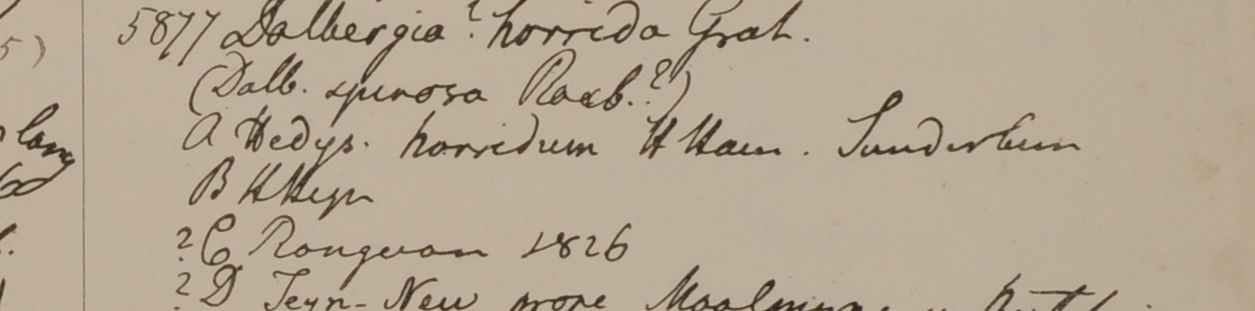 5877 Dalbergia? horrida Grah.
(Dalb. spinosa Roxb.?)
A Hedys. horridum H Ham. Sunderbun
B H Heyn
?C Rangoon 1826
?D Teyn-New prope Moalmyne
lang